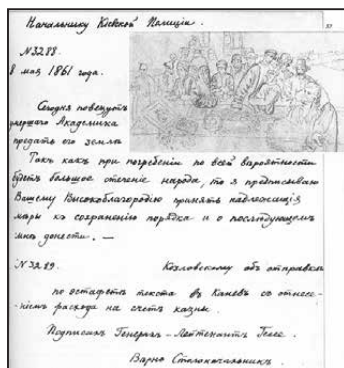 Начальнику Кіевской Полиціи.
57
N 3288
8 мая 1861 года.
Сегодня повезутъ
умершаго Академика
предать его земле
Такъ какъ при погребеніи по всей вероятности
будетъ большое стеченіе народа, то я предписываю
Вашему Высокоблагородію принять надлежащія
меры къ сохраненію порядка и о последующемъ
мне донести. —
N 3289. Козловскому объ отправкѣ
по эстафетѣ текста въ Каневъ съ отнесе-
ніемъ расхода на счетъ казны.
Подписалъ Генералъ-Лейтенантъ Гессе.
Вѣрно Столоначальникъ.